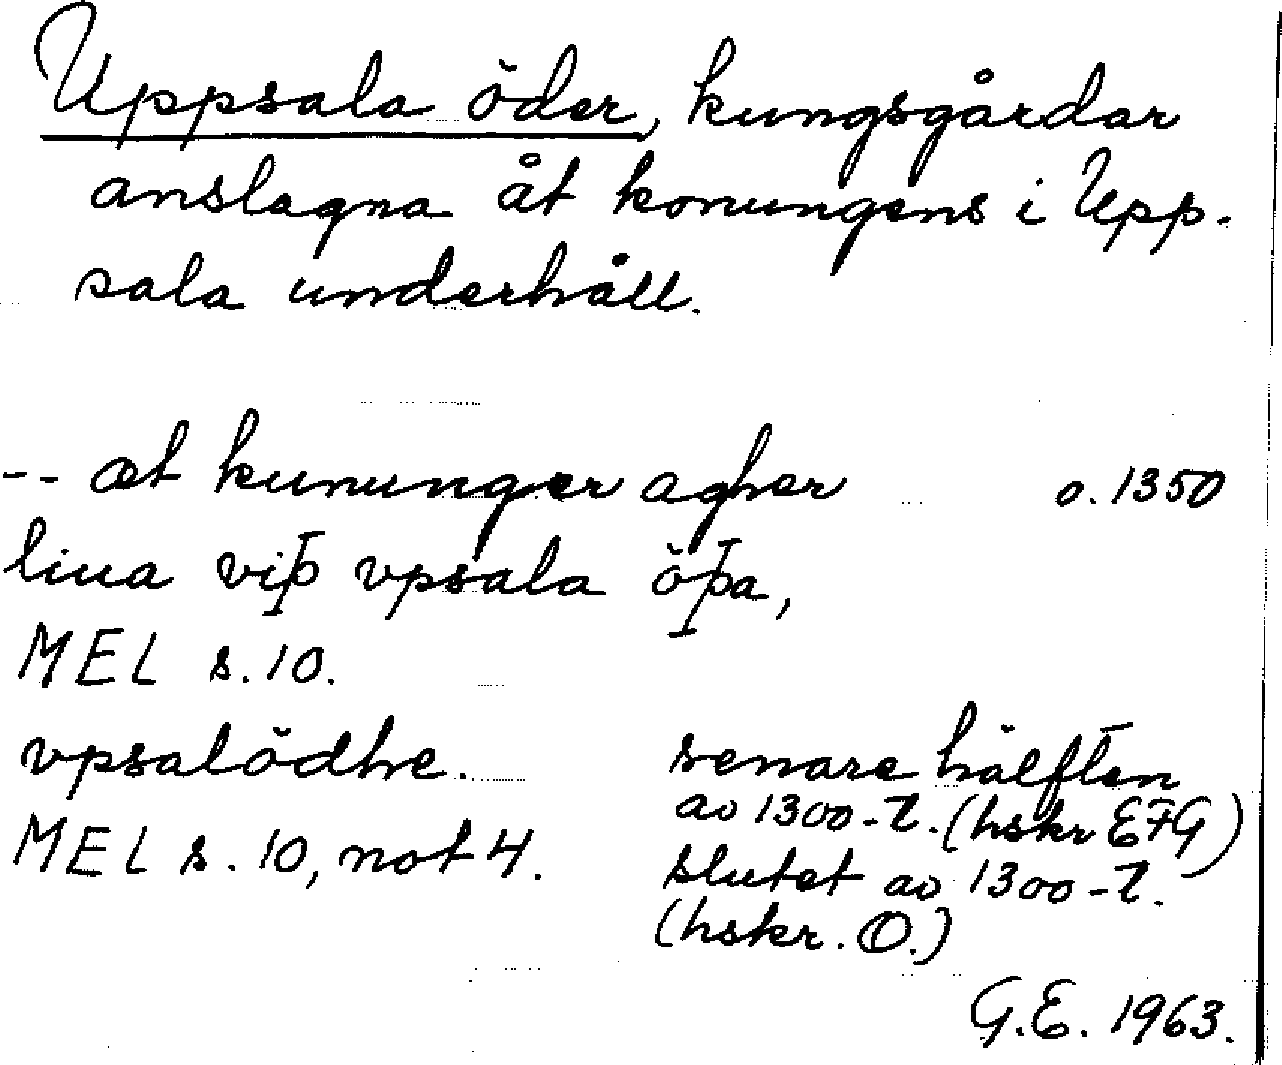 Uppsala öder, kungsgårdar
anslagna åt konungens i Upp-
sala underhåll.
-- æt kununger agher o. 1350
liua viþ vpsala öþa,
MEL s. 10.
vpsalödhe. senare hälften
av 1300-t. (hskr EFG)
MEL s. 10, not 4. slutet av 1300-t.
(hskr. O.)
G.E. 1963.